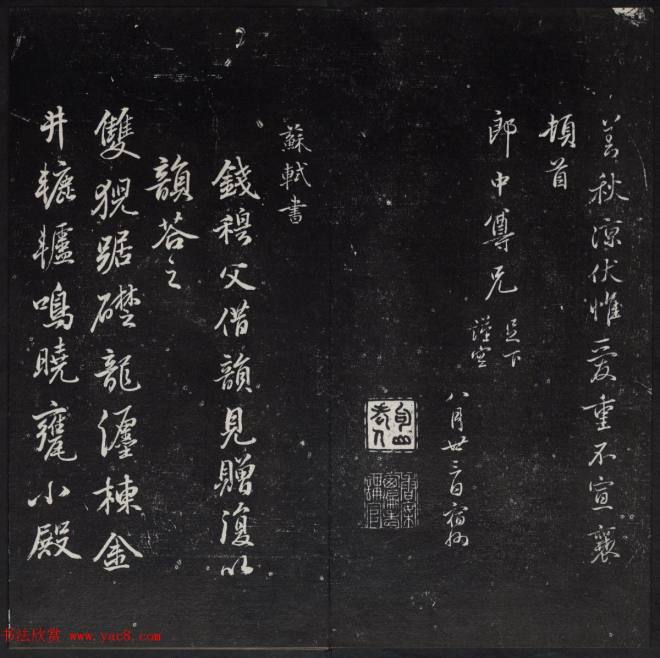 若秋凉伏惟愛重不宣襄
頓首
郎中尊兄 足下
謹空
八月廿三日宿州
蘇軾書
錢穆父借韻見贈復以
韻荅之
雙猊踞礎龍纏棟金
井轆轤鳴曉甕小殿
书法欣赏 www.yac8.com